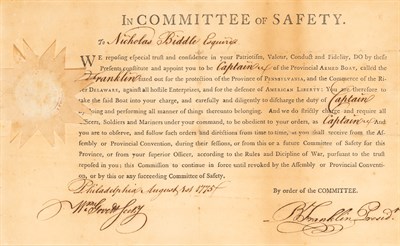 IN COMMITTEE OF SAFETY.
To Nicholas Biddle Esquire
WE reposing especial trust and confidence in your Patriotism, Valour, Conduct and Fidelity, DO by these
Presents, constitute and appoint you to be Captain of the Provincial ARMED BOAT, called the
Franklin fitted out for the protection of the Province of PENNSYLVANIA, and the Commerce of the Ri-
ver DELAWARE, against all hostile Enterprizes, and for the defence of AMERICAN LIBERTY: You are therefore to
take the said Boat into your charge, and carefully and diligently to discharge the duty of Captain
by doing and performing all manner of things thereunto belonging. And we do strictly charge and require all
Officers, Soldiers and Mariners under your command, to be obedient to your orders, as Captain And
you are to observe, and follow such orders and directions from time to time, as you shall receive from the
Assembly or Provincial Convention, during their sessions, or from this or a future Committee of Safety for
this Province, or from your Superior Officer, according to the Rules and Discipline of War, pursuant to the trust
reposed in you; this Commission to continue in force until revoked by the Assembly or Provincial Conven-
tion, or by this or any succeeding Committee of Safety.
Philadelphia August 1st 1775
By order of the COMMITTEE.
Wm Govett Secty
B Franklin Presidt